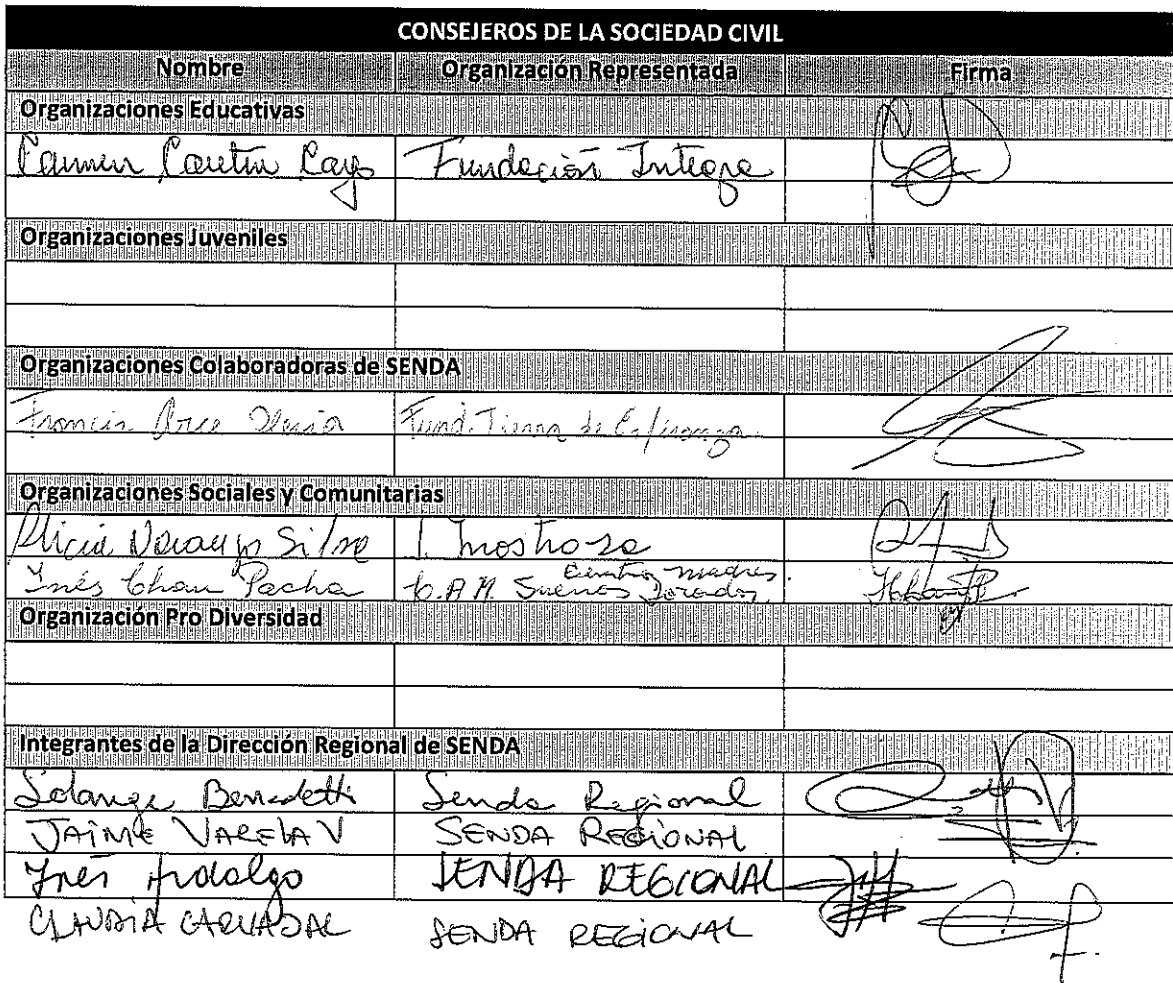 CONSEJEROS DE LA SOCIEDAD CIVIL
Nombre Organización Representada Firma
Organizaciones Educativas
Carmen Cayo Fundación Integra
Organizaciones Juveniles
Organizaciones Colaboradoras de SENDA
Arce Fund. Tierra de Esperanza.
Organizaciones Sociales y Comunitarias
Alicia Silva
Centro madres.
Inés Chau Pacha C.A.M. Sueños Dorados
Organización Pro Diversidad
Integrantes de la Dirección Regional de SENDA
Solange Benedetti Senda Regional
JAIME VARELA V SENDA REGIONAL
Inés Hidalgo SENDA REGIONAL
CLAUDIA CARVAJAL SENDA REGIONAL